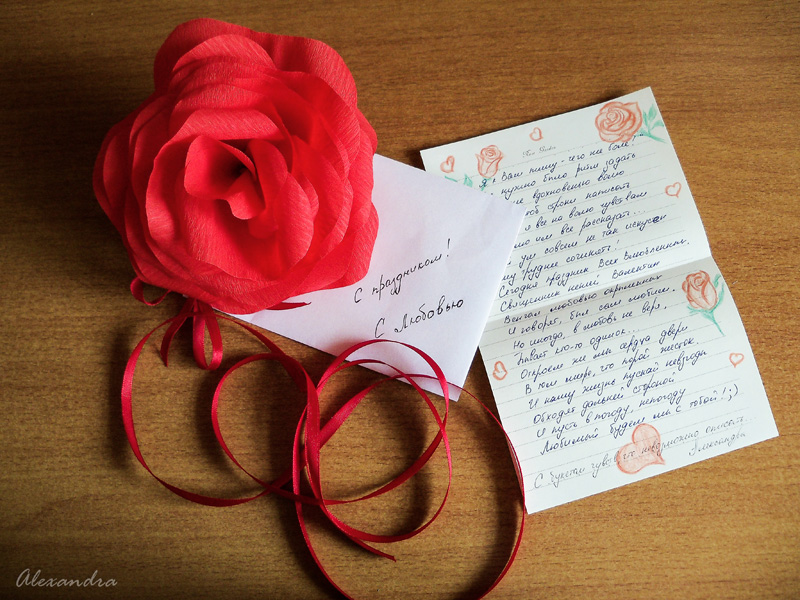 С праздником!
С Любовью
Я к Вам пишу - чего же боле?
нужно было ритм задать
вдохновенно волю
строки написать
я все на волю чувствам
им все рассказать...
ум совсем не так искусен
ему труднее сочинять!
Сегодня праздник Всех Влюбленных,
Священник некий, Валентин
Венчал любовью окрыленных
И говорят, был сам любим.
Но иногда, в любовь не веря,
Бывает кто-то одинок...
Откроем же мы сердца двери
В том мире, что порой жесток.
И нашу жизнь пускай невзгода
Обходит дальней стороной
И пусть в погоду, непогоду
Любимый будем мы с тобой! ;)
С букетом чувств, что невозможно описать.
Александра
Alexandra